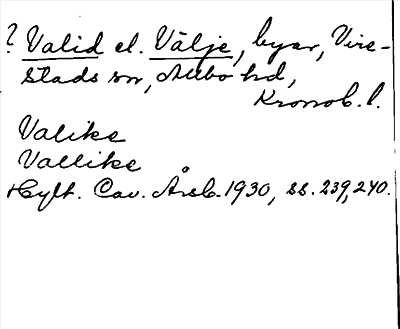 ? Valid el. Välje, byar, Vire-
stads sn, Allbo hd,
Kronob. l.
Valike
Vallike
Hylt. Cav. Årsb. 1930, ss. 239, 240.